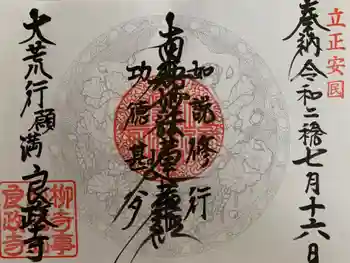 立正安国
奉納 令和二稔七月十六日
如説修行
南無妙法蓮華経
功徳甚多
大荒行願満 良政寺
柳寺事
良政寺